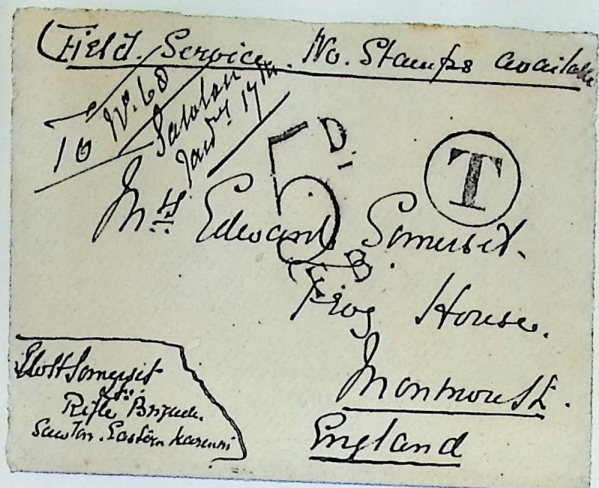 Field. Service. No. Stamps availabl
To No. 68
Sawlon
Jany 17th
5D.
T
Mrs Edward Somerset.
F.B.
Frog House.
Monmouth.
England
Somerset
Rifle Brigade.
Sawlon. Eastern Karenni